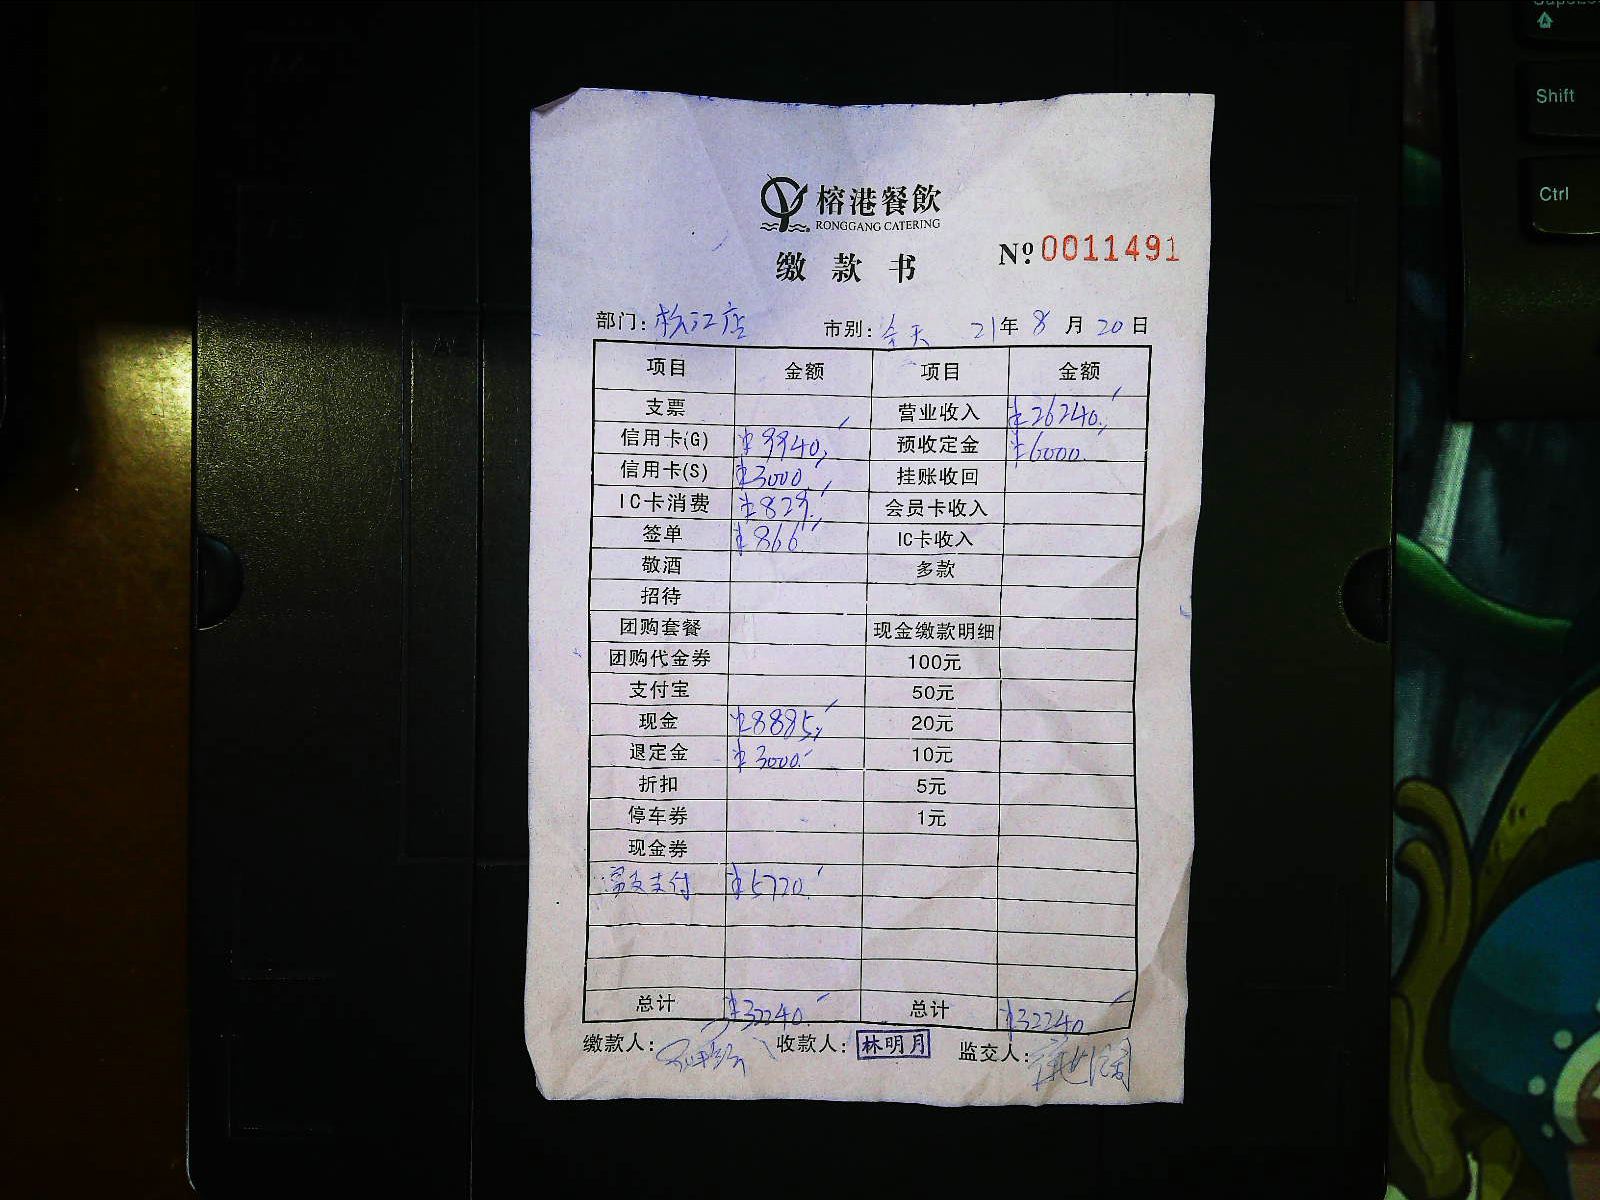 Shift
Ctrl
榕港餐飲
RONGGANG CATERING
缴款书
№ 0011491
部门: 松江店 市别: 全天 21年 8月 20日
项目 金额 项目 金额
支票 营业收入 ¥26240.
信用卡(G) ¥9940. 预收定金 ¥6000.
信用卡(S) ¥3000 挂账收回
IC卡消费 ¥829. 会员卡收入
签单 ¥866 IC卡收入
敬酒 多款
招待
团购套餐 现金缴款明细
团购代金券 100元
支付宝 50元
现金 ¥8885. 20元
退定金 ¥3000. 10元
折扣 5元
停车券 1元
现金券
支付 ¥5720.
总计 ¥32240. 总计 ¥32240
缴款人: 收款人: 林明月 监交人: